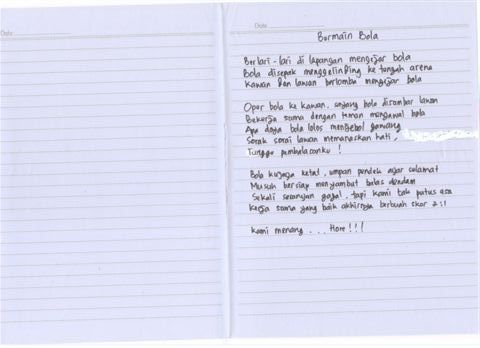 Date
Date
Bermain Bola
Berlari-lari di lapangan mengejar bola
Bola disepak menggelinding ke tengah arena
Kawan dan lawan berlomba mengejar bola
Oper bola ke kawan, sayang bola disambar lawan
Bekerja sama dengan teman mengawal bola
Apa daya bola lolos menjebol gawang
Sorak sorai lawan memanaskan hati,
Tunggu pembalasanku !
Bola kujaga ketat, umpan pendek agar selamat
Musuh bersiap menyambut balas dendam
Sekali serangan gagal, tapi kami tak putus asa
Kerja sama yang baik akhirnya berbuah skor 2:1
Kami menang ... Hore!!!